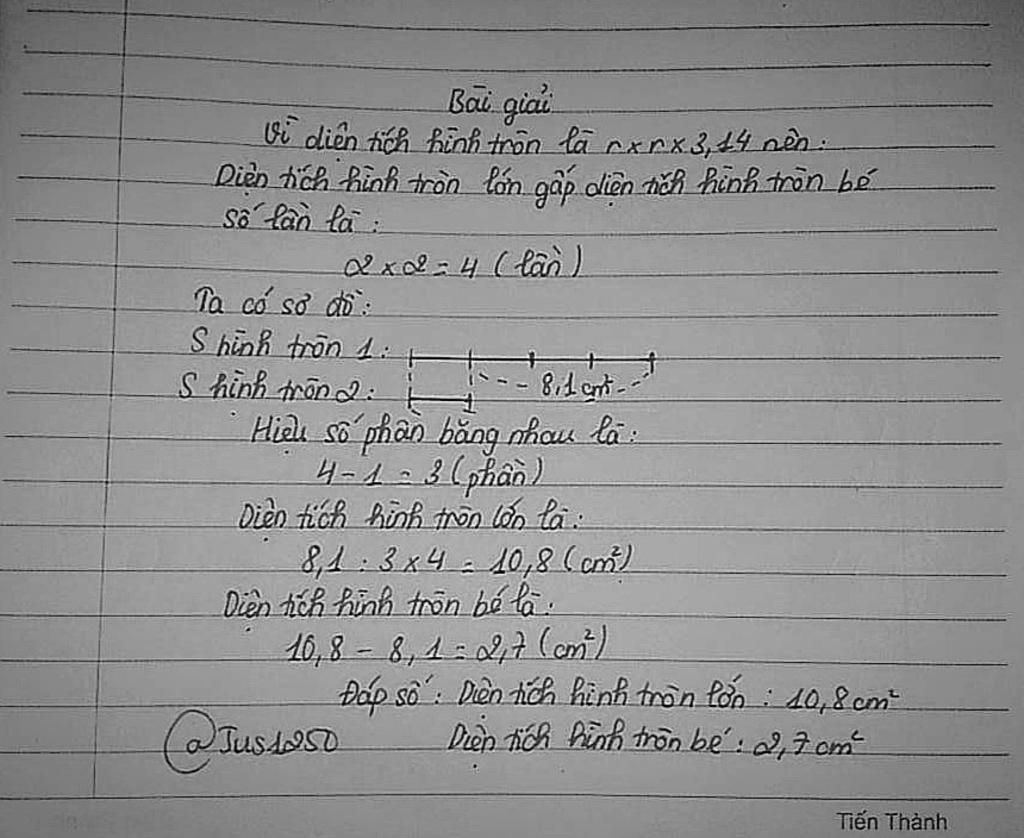 Bài giải
Vì diện tích hình tròn là r x r x 3,14 nên:
Diện tích hình tròn lớn gấp diện tích hình tròn bé
số lần là:
2 x 2 = 4 (lần)
Ta có sơ đồ:
S hình tròn 1:
S hình tròn 2: 8,1 cm²
Hiệu số phần bằng nhau là:
4 - 1 = 3 (phần)
Diện tích hình tròn lớn là:
8,1 : 3 x 4 = 10,8 (cm²)
Diện tích hình tròn bé là:
10,8 - 8,1 = 2,7 (cm²)
Đáp số: Diện tích hình tròn lớn : 10,8 cm²
@Jus1250 Diện tích hình tròn bé : 2,7 cm²
Tiến Thành